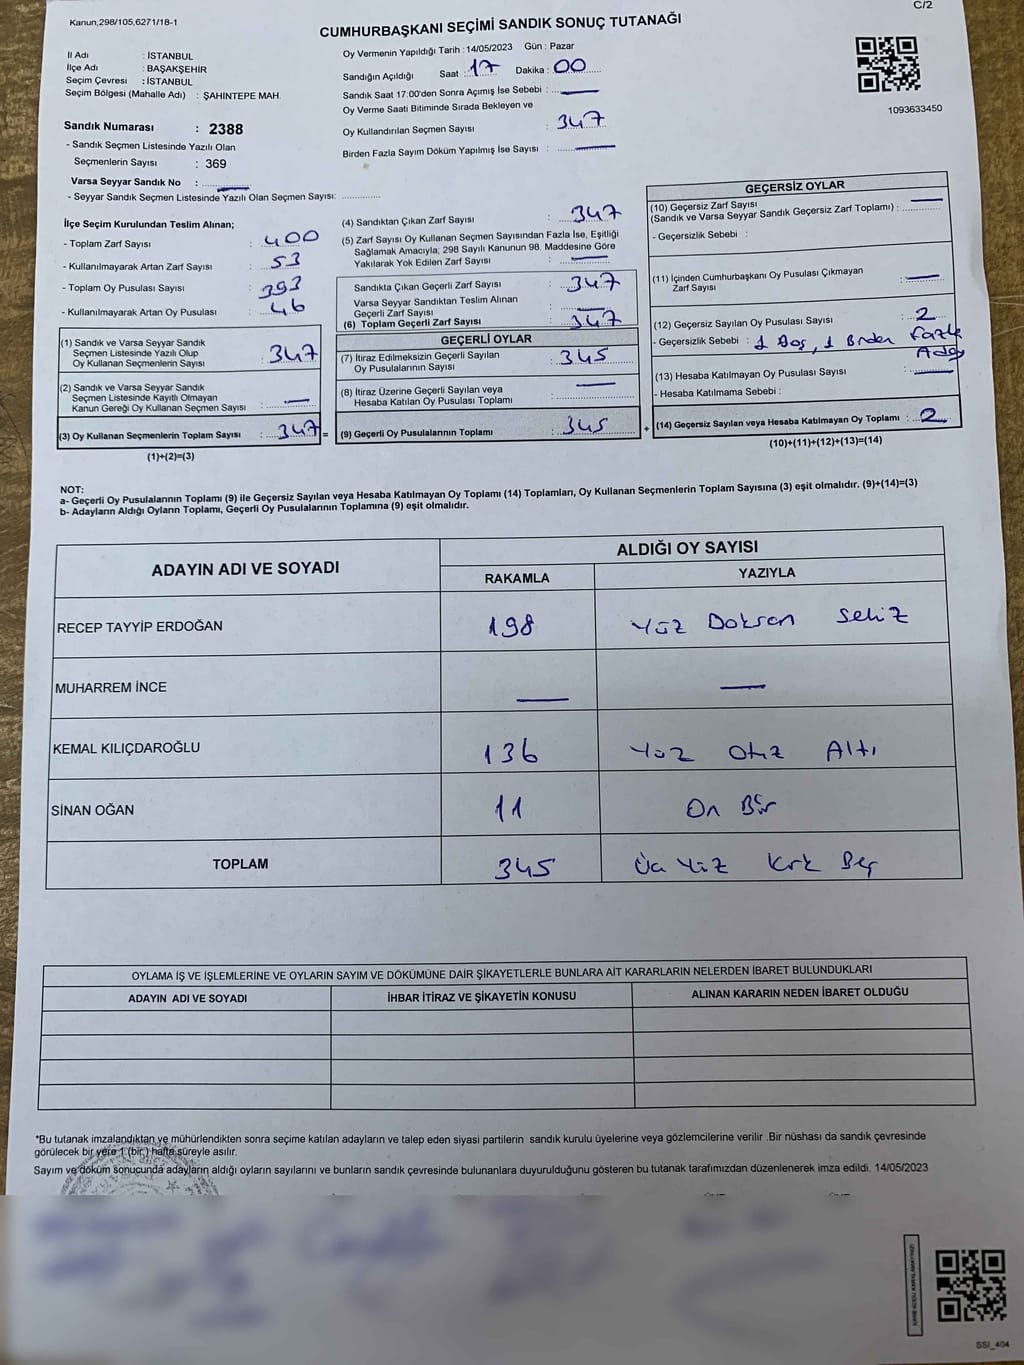 Kanun,298/105,6271/18-1
C/2
CUMHURBAŞKANI SEÇİMİ SANDIK SONUÇ TUTANAĞI
İl Adı : İSTANBUL
İlçe Adı : BAŞAKŞEHİR
Seçim Çevresi : İSTANBUL
Seçim Bölgesi (Mahalle Adı) : ŞAHİNTEPE MAH.
Sandık Numarası : 2388
- Sandık Seçmen Listesinde Yazılı Olan
Seçmenlerin Sayısı : 369
Varsa Seyyar Sandık No : —
- Seyyar Sandık Seçmen Listesinde Yazılı Olan Seçmen Sayısı: ............
Oy Vermenin Yapıldığı Tarih : 14/05/2023 Gün : Pazar
Sandığın Açıldığı Saat : 17 Dakika : 00
Sandık Saat 17:00'den Sonra Açımış İse Sebebi : —
Oy Verme Saati Bitiminde Sırada Bekleyen ve
Oy Kullandırılan Seçmen Sayısı : 347
Birden Fazla Sayım Döküm Yapılmış İse Sayısı : —
1093633450
İlçe Seçim Kurulundan Teslim Alınan;
- Toplam Zarf Sayısı : 400
- Kullanılmayarak Artan Zarf Sayısı : 53
- Toplam Oy Pusulası Sayısı : 393
- Kullanılmayarak Artan Oy Pusulası : 46
(1) Sandık ve Varsa Seyyar Sandık
Seçmen Listesinde Yazılı Olup
Oy Kullanan Seçmenlerin Sayısı : 347
(2) Sandık ve Varsa Seyyar Sandık
Seçmen Listesinde Kayıtlı Olmayan
Kanun Gereği Oy Kullanan Seçmen Sayısı : —
(3) Oy Kullanan Seçmenlerin Toplam Sayısı : 347 =
(1)+(2)=(3)
(4) Sandıktan Çıkan Zarf Sayısı : 347
(5) Zarf Sayısı Oy Kullanan Seçmen Sayısından Fazla İse, Eşitliği
Sağlamak Amacıyla; 298 Sayılı Kanunun 98. Maddesine Göre
Yakılarak Yok Edilen Zarf Sayısı : —
Sandıkta Çıkan Geçerli Zarf Sayısı : 347
Varsa Seyyar Sandıktan Teslim Alınan
Geçerli Zarf Sayısı : —
(6) Toplam Geçerli Zarf Sayısı : 347
GEÇERLİ OYLAR
(7) İtiraz Edilmeksizin Geçerli Sayılan
Oy Pusulalarının Sayısı : 345
(8) İtiraz Üzerine Geçerli Sayılan veya
Hesaba Katılan Oy Pusulası Toplamı : —
(9) Geçerli Oy Pusulalarının Toplamı : 345 +
GEÇERSİZ OYLAR
(10) Geçersiz Zarf Sayısı
(Sandık ve Varsa Seyyar Sandık Geçersiz Zarf Toplamı) : —
- Geçersizlik Sebebi :
(11) İçinden Cumhurbaşkanı Oy Pusulası Çıkmayan
Zarf Sayısı : —
(12) Geçersiz Sayılan Oy Pusulası Sayısı : 2
- Geçersizlik Sebebi : 1 Boş, 1 Birden Fazla
Aday
(13) Hesaba Katılmayan Oy Pusulası Sayısı : —
- Hesaba Katılmama Sebebi :
(14) Geçersiz Sayılan veya Hesaba Katılmayan Oy Toplamı : 2
(10)+(11)+(12)+(13)=(14)
NOT:
a- Geçerli Oy Pusulalarının Toplamı (9) ile Geçersiz Sayılan veya Hesaba Katılmayan Oy Toplamı (14) Toplamları, Oy Kullanan Seçmenlerin Toplam Sayısına (3) eşit olmalıdır. (9)+(14)=(3)
b- Adayların Aldığı Oyların Toplamı, Geçerli Oy Pusulalarının Toplamına (9) eşit olmalıdır.
ADAYIN ADI VE SOYADI ALDIĞI OY SAYISI
RAKAMLA YAZIYLA
RECEP TAYYİP ERDOĞAN 198 Yüz Doksan Sekiz
MUHARREM İNCE — —
KEMAL KILIÇDAROĞLU 136 Yüz Otuz Altı
SİNAN OĞAN 11 On Bir
TOPLAM 345 Üç Yüz Kırk Beş
OYLAMA İŞ VE İŞLEMLERİNE VE OYLARIN SAYIM VE DÖKÜMÜNE DAİR ŞİKAYETLERLE BUNLARA AİT KARARLARIN NELERDEN İBARET BULUNDUKLARI
ADAYIN ADI VE SOYADI İHBAR İTİRAZ VE ŞİKAYETİN KONUSU ALINAN KARARIN NEDEN İBARET OLDUĞU
*Bu tutanak imzalandıktan ve mühürlendikten sonra seçime katılan adayların ve talep eden siyasi partilerin sandık kurulu üyelerine veya gözlemcilerine verilir .Bir nüshası da sandık çevresinde
görülecek bir yere 1 (bir ) hafta süreyle asılır.
Sayım ve döküm sonucunda adayların aldığı oyların sayılarını ve bunların sandık çevresinde bulunanlara duyurulduğunu gösteren bu tutanak tarafımızdan düzenlenerek imza edildi. 14/05/2023
KARE KODU KARALAMAYINIZ!
SSI_404